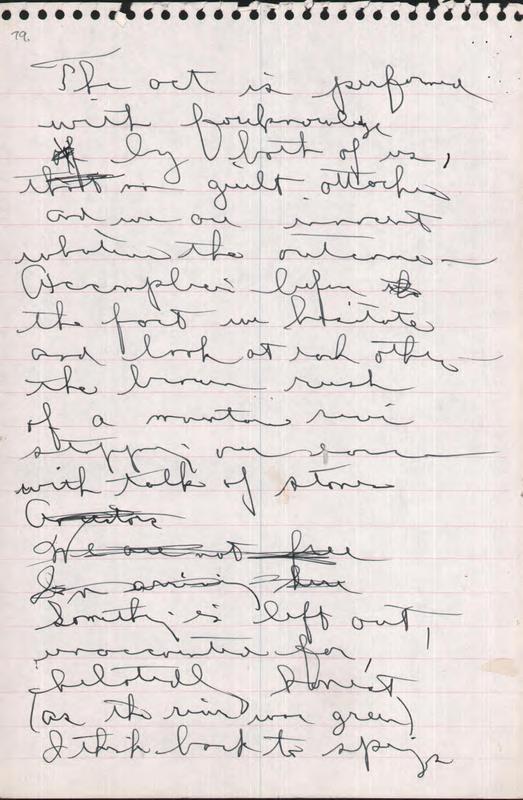 79.
The act is performed
with foreknowledge
by both of us,
that no guilt attaches
and we are innocent
whatever the outcome —
Accomplices before the
the fact we hesitate
and look at each other —
the brown rush
of a mountain river
stopping our
with talk of stones
We are not free
In arriving here
Something is left out,
unaccounted for,
belatedly honest
(as the river was green)
I think back to springs